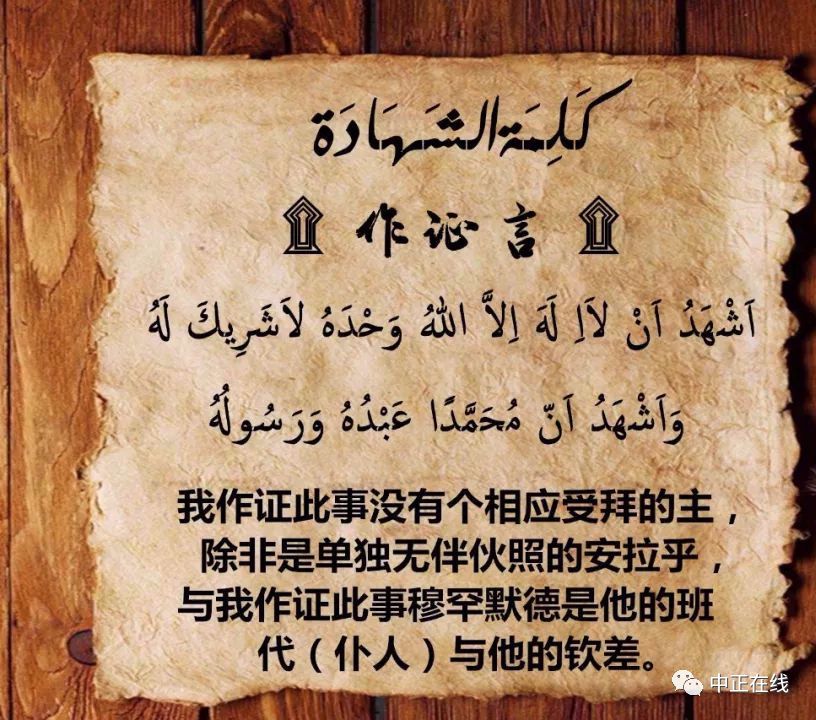 كَلِمَةُ الشَّهَادَة
۩ 作证言 ۩
اَشْهَدُ اَنْ لاَاِ لَهَ اِلاَّ اللهُ وَحْدَهُ لاَشَرِيكَ لَهُ
وَاَشْهَدُ اَنّ مُحَمَّدًا عَبْدُهُ وَرَسُولُهُ
我作证此事没有个相应受拜的主，
除非是单独无伴伙照的安拉乎，
与我作证此事穆罕默德是他的班
代（仆人）与他的钦差。
中正在线